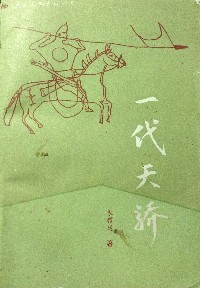 一代天骄